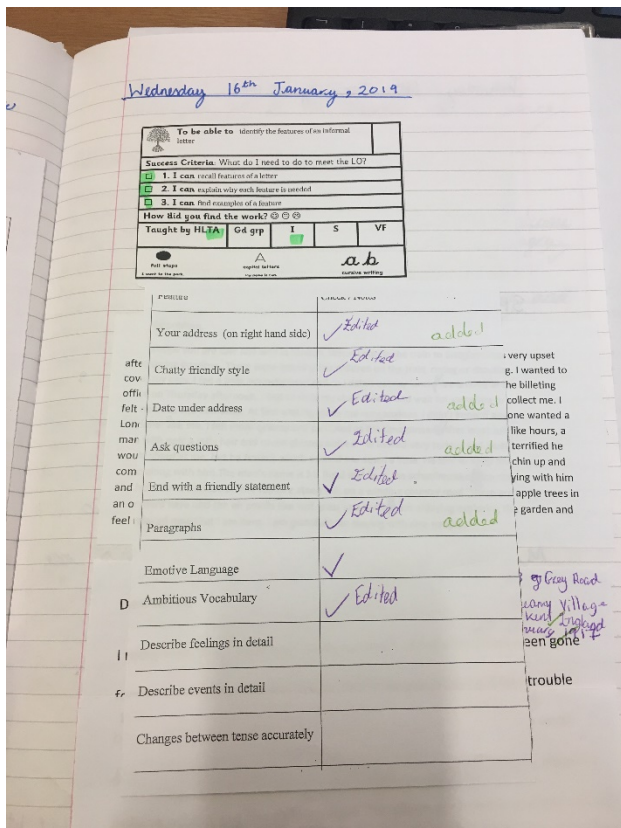 Wednesday 16th January, 2019
To be able to identify the features of an informal
letter
Success Criteria: What do I need to do to meet the LO?
1. I can recall features of a letter
2. I can explain why each feature is needed
3. I can find examples of a feature
How did you find the work?
Taught by HLTA Gd grp I S VF
full stops capital letters a b cursive writing
Your address (on right hand side) Edited added
Chatty friendly style Edited
Date under address Edited added
Ask questions Edited added
End with a friendly statement Edited
Paragraphs Edited added
Emotive Language
Ambitious Vocabulary Edited
Describe feelings in detail
Describe events in detail
Changes between tense accurately
afte
cov
offi
felt
Lon
mar
wou
com
and
an o
feel
very upset
g. I wanted to
he billeting
collect me. I
one wanted a
like hours, a
terrified he
chin up and
ying with him
apple trees in
garden and
Grey Road
Village
Kent, England
D
een gone
trouble